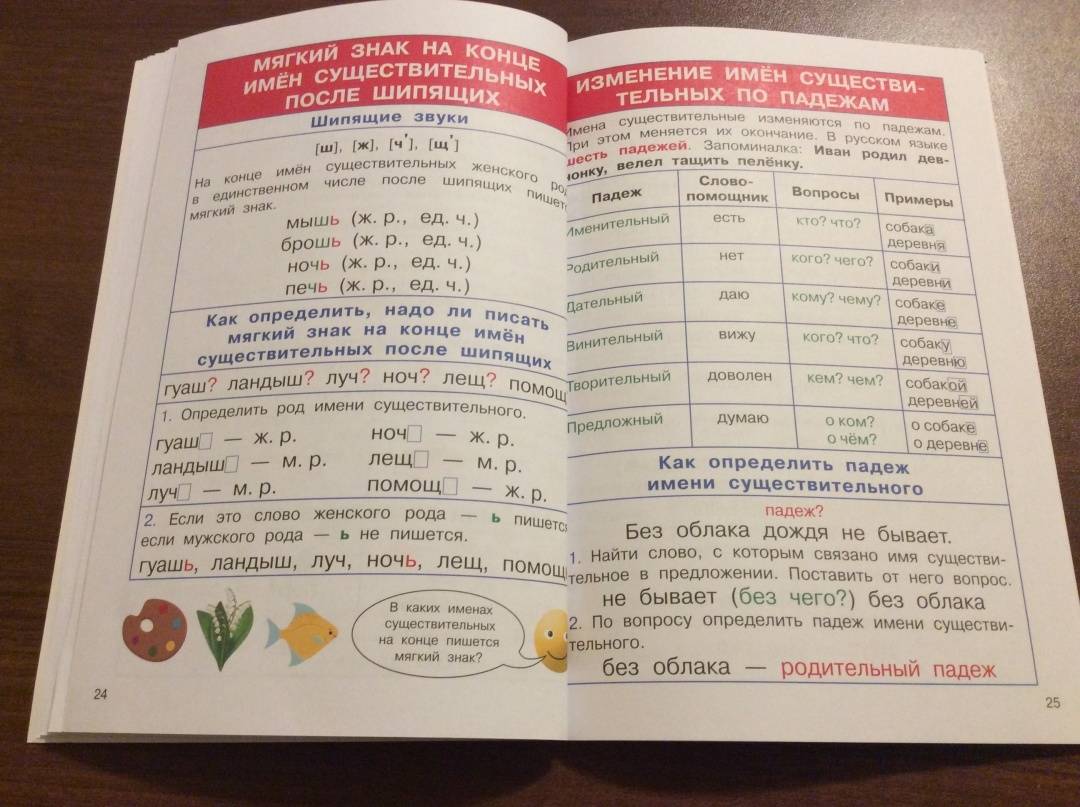 МЯГКИЙ ЗНАК НА КОНЦЕ
ИМЁН СУЩЕСТВИТЕЛЬНЫХ
ПОСЛЕ ШИПЯЩИХ
Шипящие звуки
[ш], [ж], [ч'], [щ']
На конце имён существительных женского
в единственном числе после шипящих
мягкий знак.
мышь (ж. р., ед. ч.)
брошь (ж. р., ед. ч.)
ночь (ж. р., ед. ч.)
печь (ж. р., ед. ч.)
Как определить, надо ли писать
мягкий знак на конце имён
существительных после шипящих
гуаш? ландыш? луч? ноч? лещ? помощ
1. Определить род имени существительного.
гуаш□ — ж. р. ноч□ — ж. р.
ландыш□ — м. р. лещ□ — м. р.
луч□ — м. р. помощ□ — ж. р.
2. Если это слово женского рода — ь пишется
если мужского рода — ь не пишется.
гуашь, ландыш, луч, ночь, лещ, помощ
В каких именах
существительных
на конце пишется
мягкий знак?
24
ИЗМЕНЕНИЕ ИМЁН СУЩЕСТВИ-
ТЕЛЬНЫХ ПО ПАДЕЖАМ
Имена существительные изменяются по падежам.
При этом меняется их окончание. В русском языке
шесть падежей. Запоминалка: Иван родил дев-
чонку, велел тащить пелёнку.
Падеж Слово-помощник Вопросы Примеры
Именительный есть кто? что? собака
деревня
Родительный нет кого? чего? собаки
деревни
Дательный даю кому? чему? собаке
деревне
Винительный вижу кого? что? собаку
деревню
Творительный доволен кем? чем? собакой
деревней
Предложный думаю о ком? о собаке
о чём? о деревне
Как определить падеж
имени существительного
падеж?
Без облака дождя не бывает.
1. Найти слово, с которым связано имя существи-
тельное в предложении. Поставить от него вопрос.
не бывает (без чего?) без облака
2. По вопросу определить падеж имени существи-
тельного.
без облака — родительный падеж
25